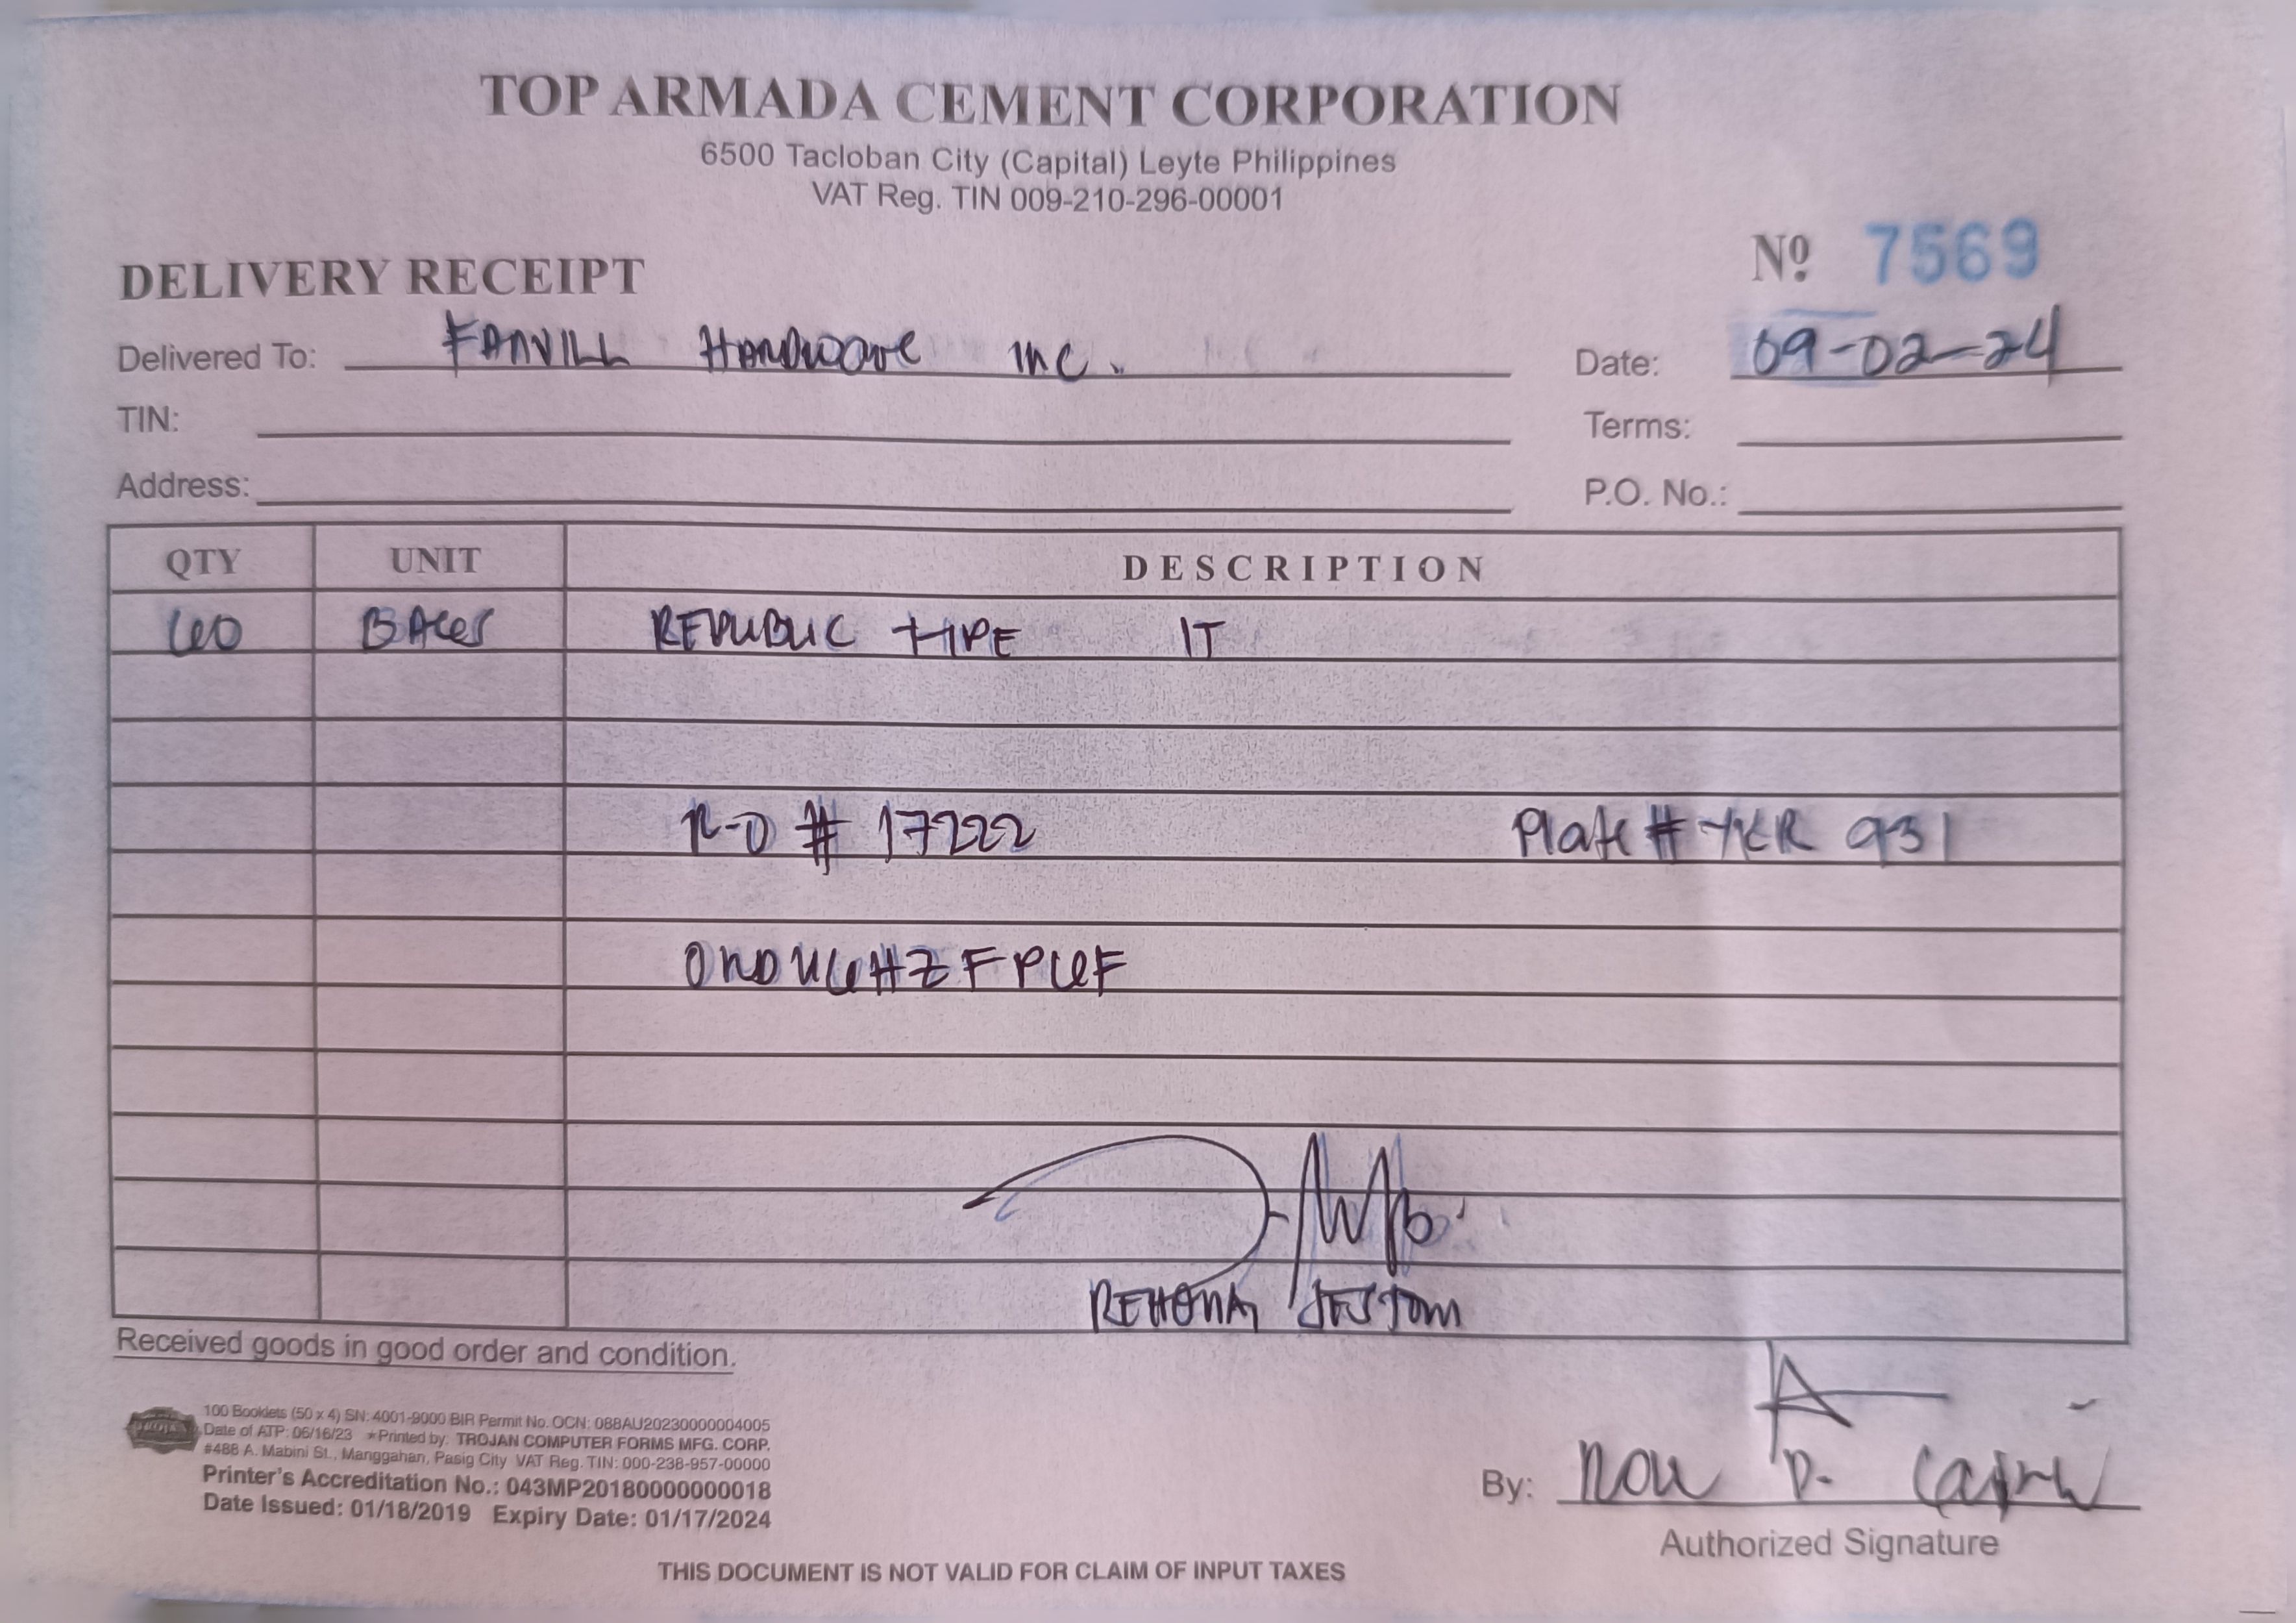 TOP ARMADA CEMENT CORPORATION
6500 Tacloban City (Capital) Leyte Philippines
VAT Reg. TIN 009-210-296-00001
DELIVERY RECEIPT
Nº 7569
Delivered To: FANVILL HARDWARE INC.
Date: 09-02-24
TIN:
Terms:
Address:
P.O. No.:
QTY UNIT DESCRIPTION
REPUBLIC TYPE
# 17222 Plate # 931
Received goods in good order and condition.
100 Booklets (50 x 4) SN: 4001-9000 BIR Permit No. OCN: 088AU20230000004005
Date of ATP: 06/16/23 *Printed by: TROJAN COMPUTER FORMS MFG. CORP.
#488 A. Mabini St., Manggahan, Pasig City VAT Reg. TIN: 000-238-957-00000
Printer's Accreditation No.: 043MP20180000000018
Date Issued: 01/18/2019 Expiry Date: 01/17/2024
By:
Authorized Signature
THIS DOCUMENT IS NOT VALID FOR CLAIM OF INPUT TAXES